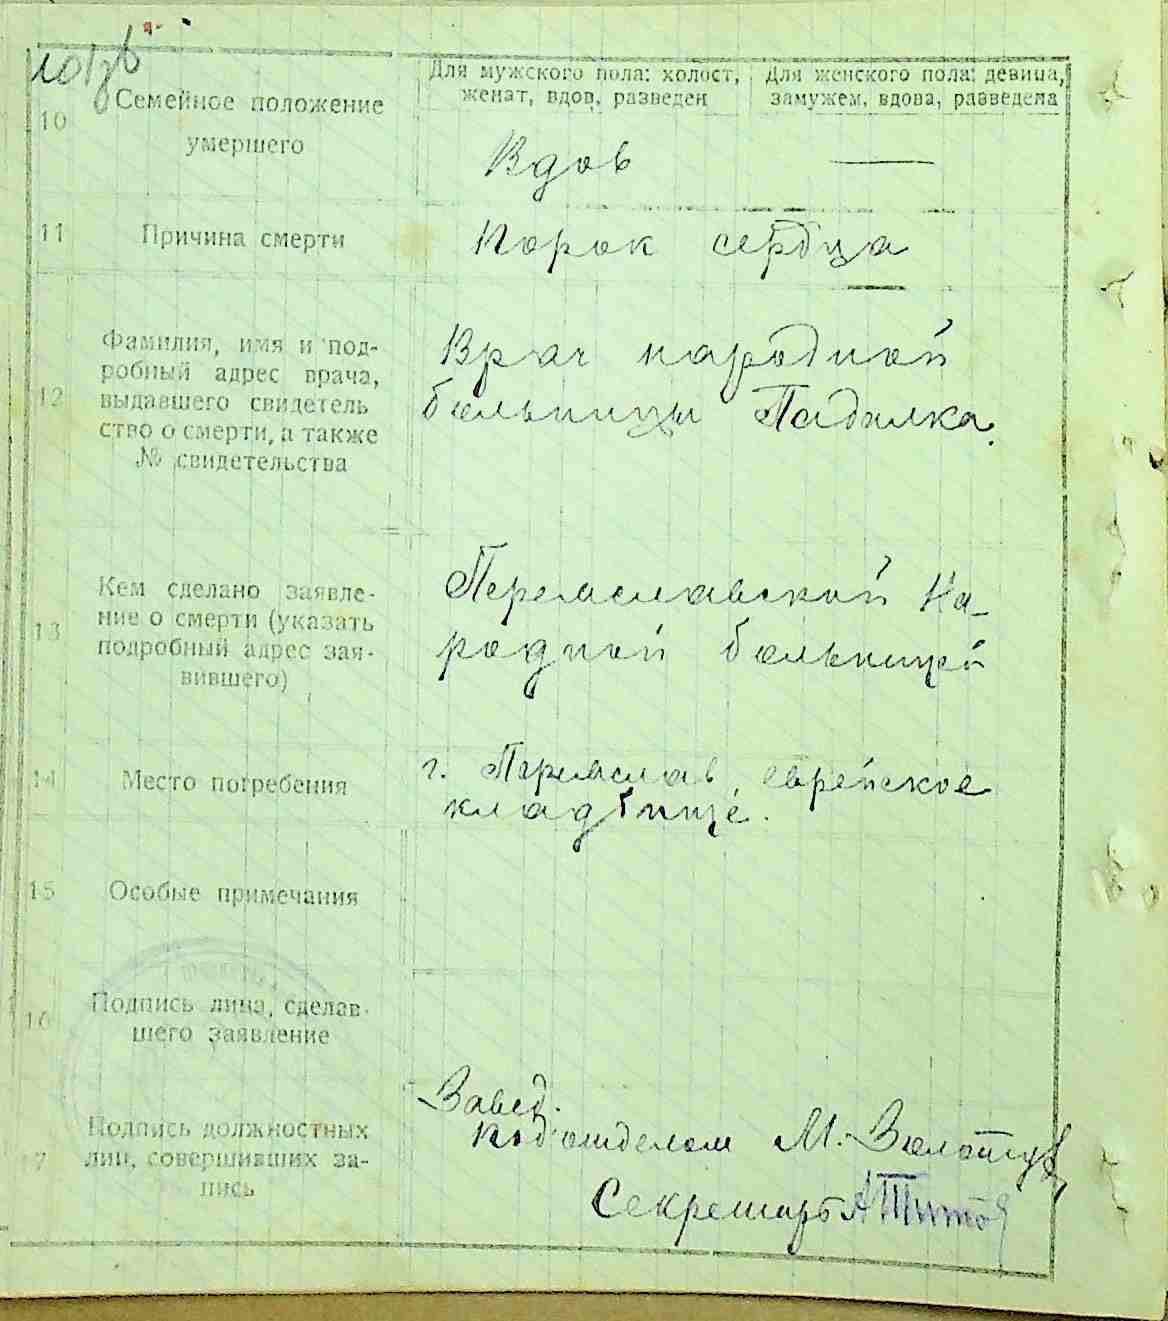 10 Семейное положение
умершего
Для мужского пола: холост,
женат, вдов, разведен
Для женского пола: девица,
замужем, вдова, разведена
Вдов —
11 Причина смерти
Порок сердца
12 Фамилия, имя и под-
робный адрес врача,
выдавшего свидетель
ство о смерти, а также
№ свидетельства
Врач народной
больницы Падалка.
13 Кем сделано заявле-
ние о смерти (указать
подробный адрес зая-
вившего)
Переяславской На-
родной больницей
14 Место погребения
г. Переяслав еврейское
кладбище.
15 Особые примечания
16 Подпись лица, сделав-
шего заявление
17 Подпись должностных
лиц, совершивших за-
пись
Завед.
подотделом М.
Секретарь АТитов